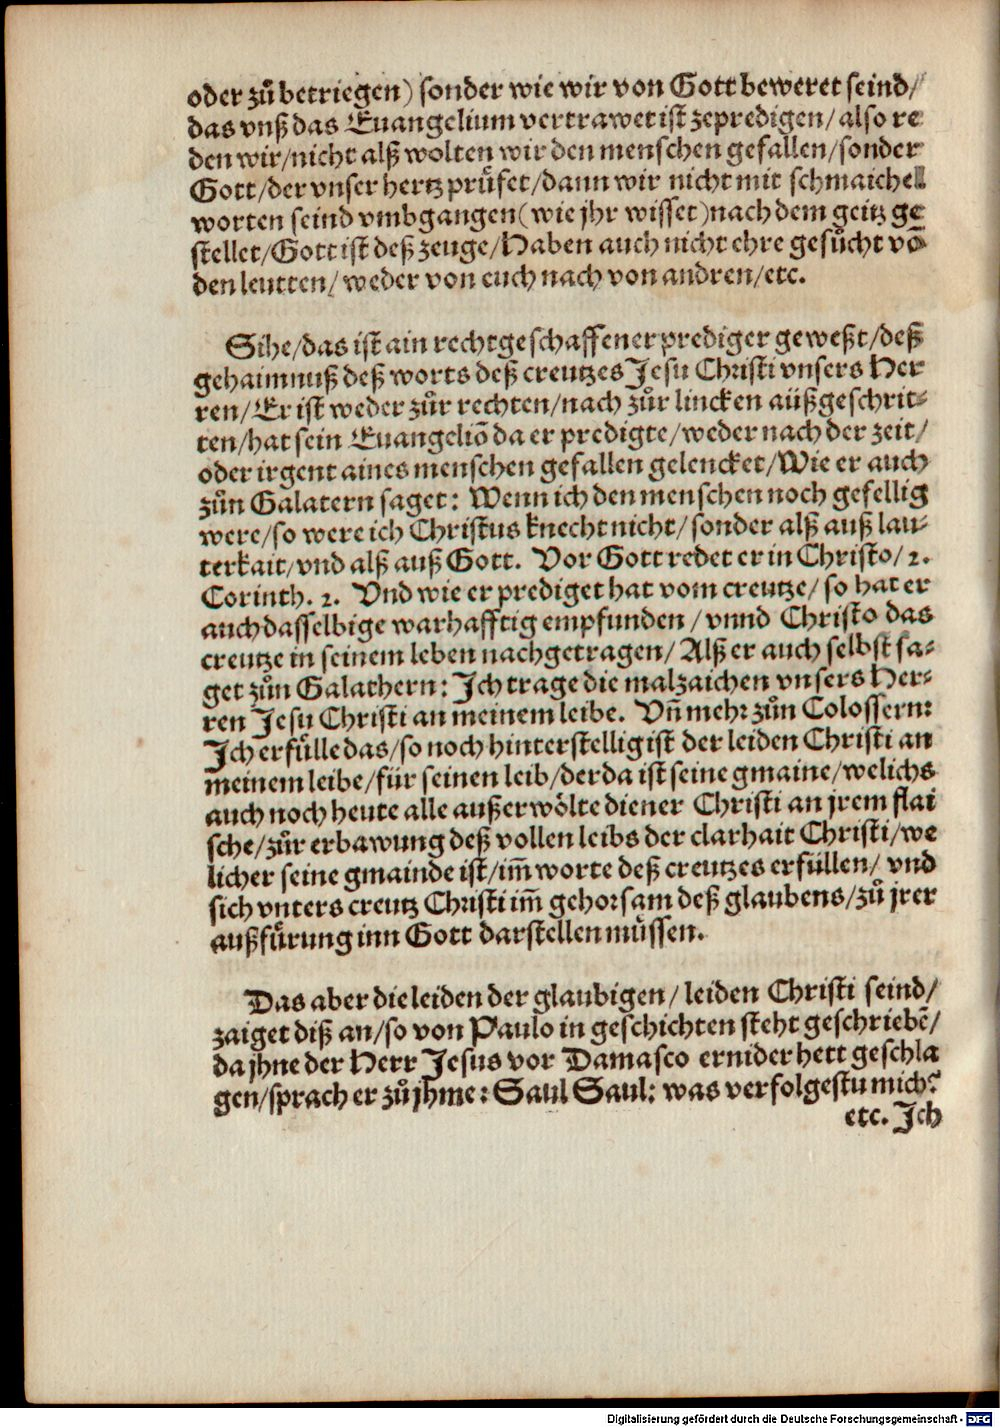 oder zuͦ betriegen) sonder wie wir von Gott beweret seind/
das vnß das Euangelium vertrawet ist zepredigen/ also re
den wir/ nicht alß wolten wir den menschen gefallen/ sonder
Gott/ der vnser hertz pruͤfet/ dann wir nicht mit schmaichel
worten seind vmbgangen (wie jhr wisset) nach dem geitz ge
stellet/ Gott ist deß zeuge/ Haben auch nicht ehre gesuͦcht võ
den leutten/ weder von euch nach von andren/ etc.
Sihe/ das ist ain rechtgeschaffener prediger geweßt/ deß
gehaimnuß deß worts deß creutzes Jesu Christi vnsers Her
ren/ Er ist weder zuͦr rechten/ nach zuͦr lincken aüßgeschrit⸗
ten/ hat sein Euangeliõ da er predigte/ weder nach der zeit/
oder irgent aines menschen gefallen gelencket/ Wie er auch
zuͦn Galatern saget: Wenn ich den menschen noch gefellig
were/ so were ich Christus knecht nicht/ sonder alß auß lau⸗
terkait/ vnd alß auß Gott. Vor Gott redet er in Christo/ 2.
Corinth. 2. Vnd wie er prediget hat vom creutze/ so hat er
auch dasselbige warhafftig empfunden/ vnnd Christo das
creutze in seinem leben nachgetragen/ Alß er auch selbst sa⸗
get zuͦn Galathern: Ich trage die malzaichen vnsers Her⸗
ren Jesu Christi an meinem leibe. Vñ mehr zuͦn Colossern:
Ich erfuͤlle das/ so noch hinterstellig ist der leiden Christi an
meinem leibe/ für seinen leib/ der da ist seine gmaine/ welichs
auch noch heute alle außerwoͤlte diener Christi an jrem flai
sche/ zuͦr erbawung deß vollen leibs der clarhait Christi/ we
licher seine gmainde ist/ im̃ worte deß creutzes erfüllen/ vnd
sich vnters creutz Christi im̃ gehorsam deß glaubens/ zuͦ jrer
außfuͤrung inn Gott darstellen muͤssen.
Das aber die leiden der glaubigen/ leiden Christi seind/
zaiget diß an/ so von Paulo in geschichten steht geschriebẽ/
da jhne der Herr Jesus vor Damasco ernider hett geschla
gen/ sprach er zuͦ jhme: Saul Saul: was verfolgestu mich?
etc. Ich
Digitalisierung gefördert durch die Deutsche Forschungsgemeinschaft - DFG